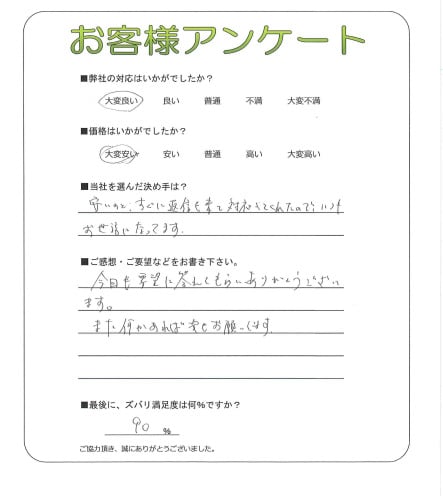 お客様アンケート
■弊社の対応はいかがでしたか?
大変良い 良い 普通 不満 大変不満
■価格はいかがでしたか?
大変安い 安い 普通 高い 大変高い
■当社を選んだ決め手は?
安いのと、すぐに返信も来て対応してくれたので、いつも
お世話になってます。
■ご感想・ご要望などをお書き下さい。
今回も要望に答えてもらいありがとうござい
ます。
また何かあれば お願いします。
■最後に、ズバリ満足度は何%ですか?
90 %
ご協力頂き、誠にありがとうございました。